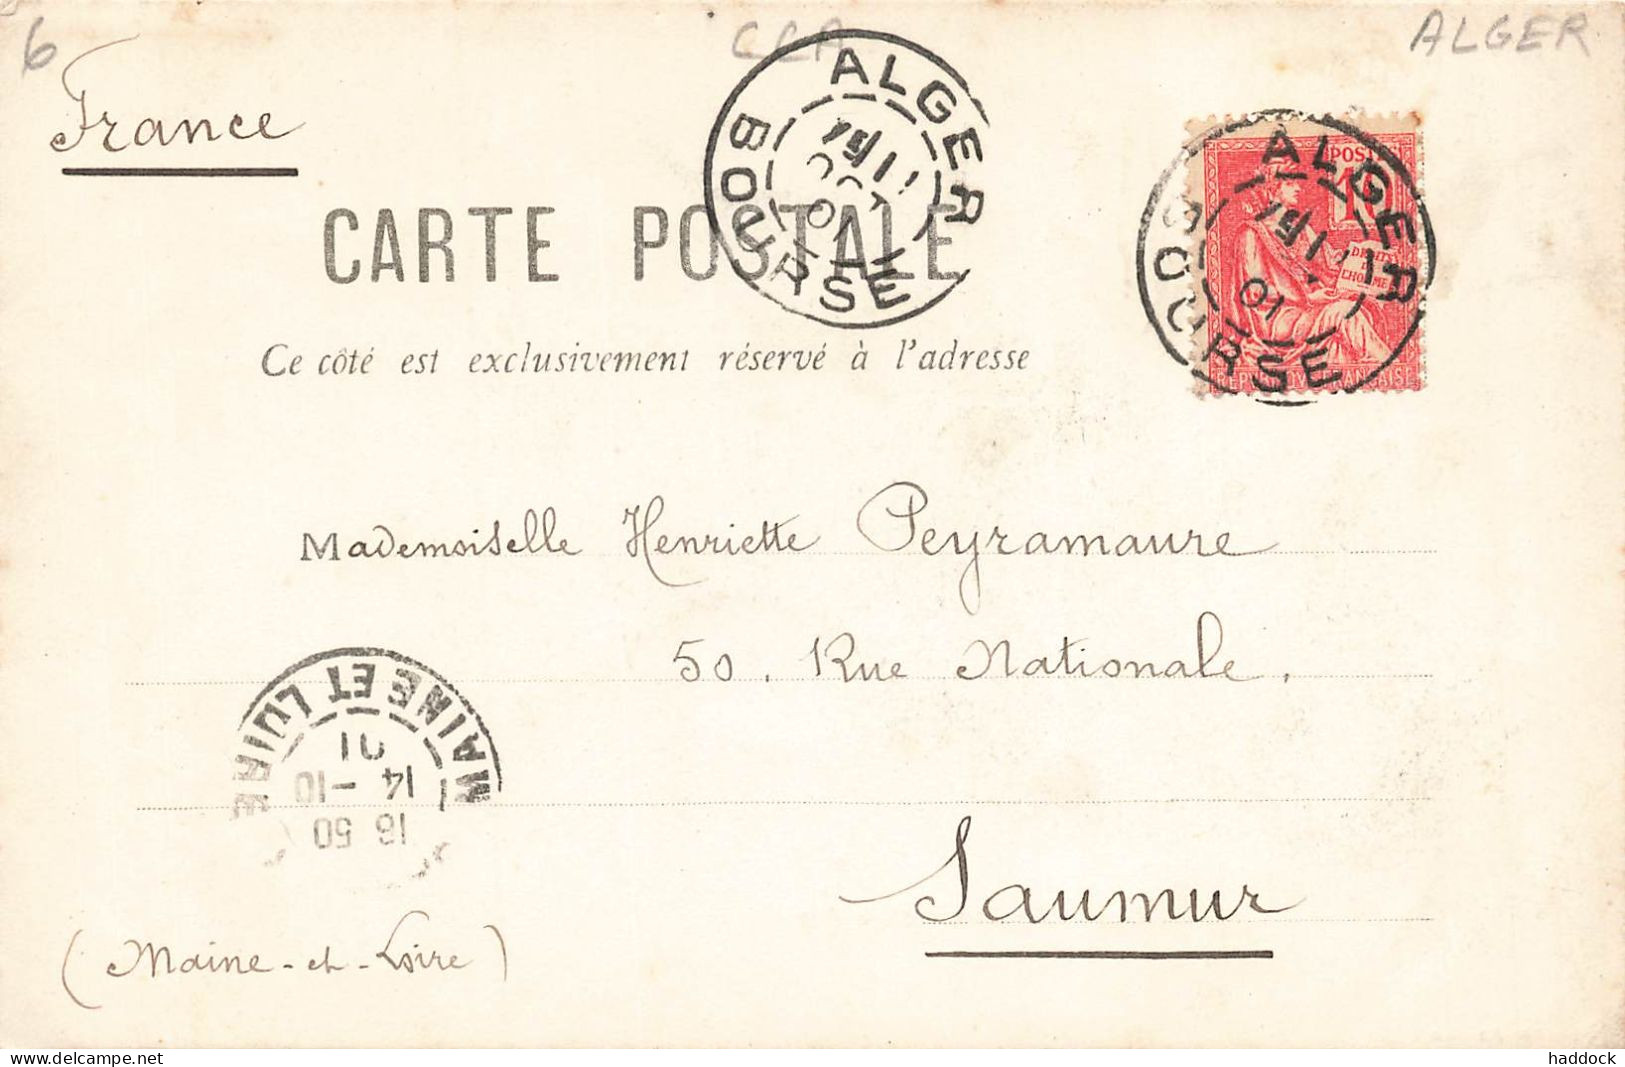 6
CCA
ALGER
France
ALGER
BOURSE
OCT
01
ALGER
BOURSE
01
POSTES
10
DROITS
DE
L'HOMME
REPUBLIQUE FRANÇAISE
CARTE POSTALE
Ce côté est exclusivement réservé à l'adresse
Mademoiselle Henriette Peyramaure
50, Rue Nationale,
MAINE ET LOIRE
18 50
14 -10
01
Saumur
(Maine-et-Loire)
delcampe.net
haddock